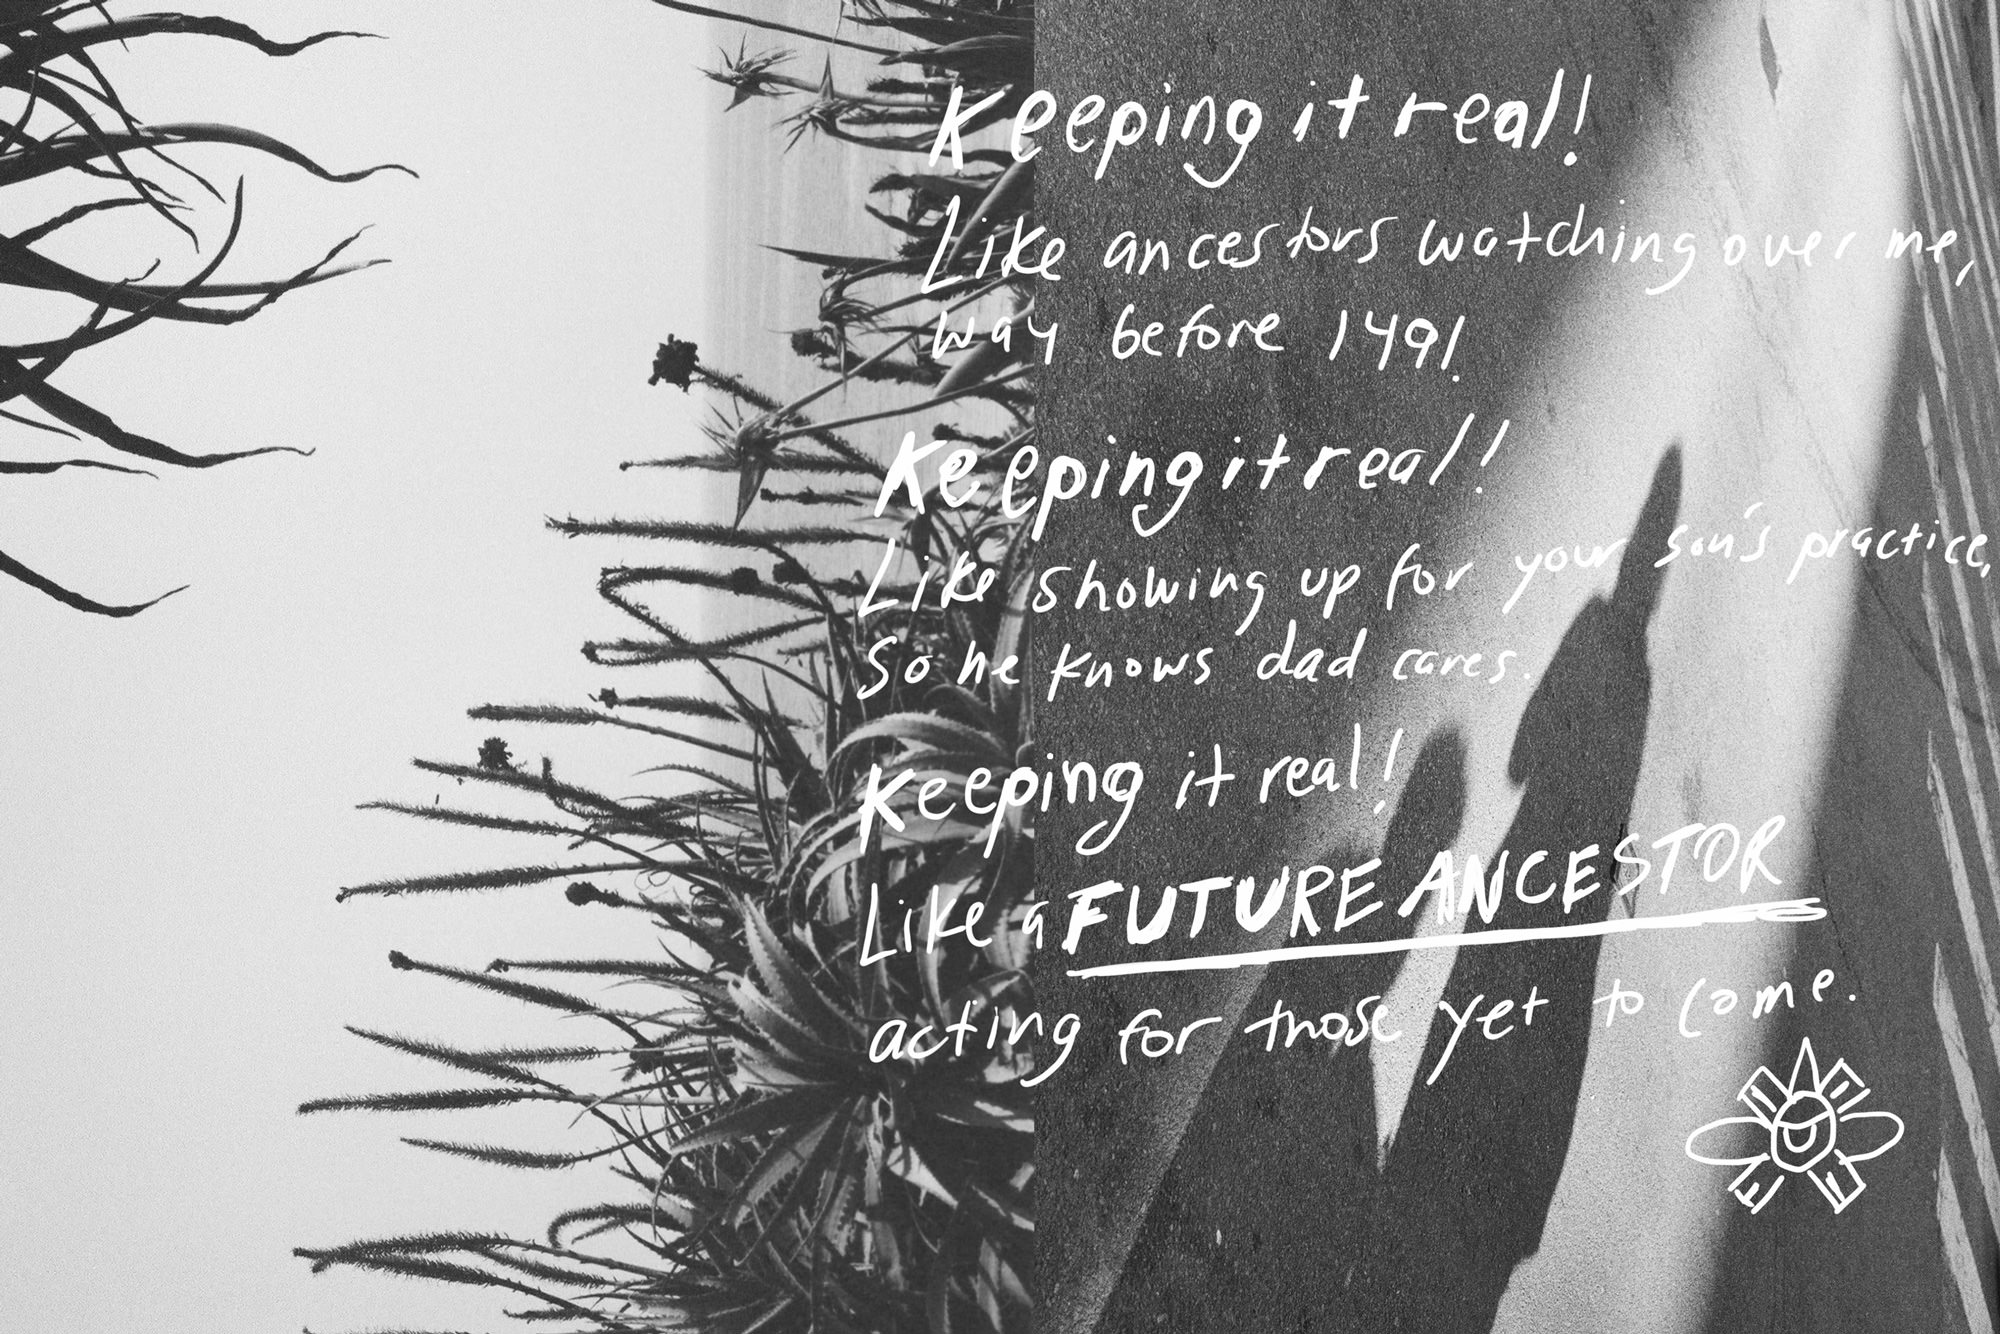 Keeping it real!
Like ancestors watching over me,
way before 1491.
Keeping it real!
Like showing up for your son's practice,
So he knows dad cares.
Keeping it real!
Like a FUTURE ANCESTOR
acting for those yet to come.